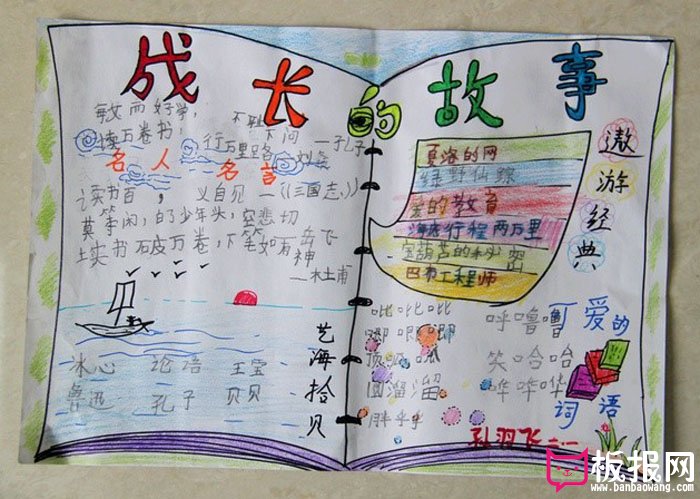 成长的故事
敏而好学,
不耻下问 —孔子
读万卷书,
行万里路
刘彝
名人名言
读书百 , 义自见 —《三国志》
莫等闲,白了少年头,空悲切
—岳飞
读书破万卷,下笔如有神
—杜甫
冰心 论语 王宝
鲁迅 孔子 贝贝
艺海拾贝
遨游经典
夏洛的网
绿野仙踪
爱的教育
海底行程两万里
宝葫芦的秘密
巴布工程师
可爱的词语
叽叽叽
唧唧唧
圆溜溜
胖乎乎
呼噜噜
笑哈哈
哗哗哗
孔羽飞 二.一
板报网
www.banbaowang.com